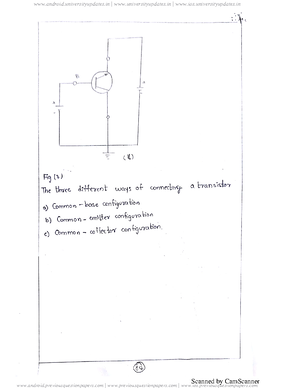 www.android.universityupdates.in | www.universityupdates.in | www.ios.universityupdates.in
B
(B)
Fig (3)
The three different ways of connecting a transistor
a) Common - base configuration
b) Common - emitter configuration
c) Common - collector configuration.
Scanned by CamScanner
www.android.previousquestionpapers.com | www.previousquestionpapers.com | www.ios.previousquestionpapers.com